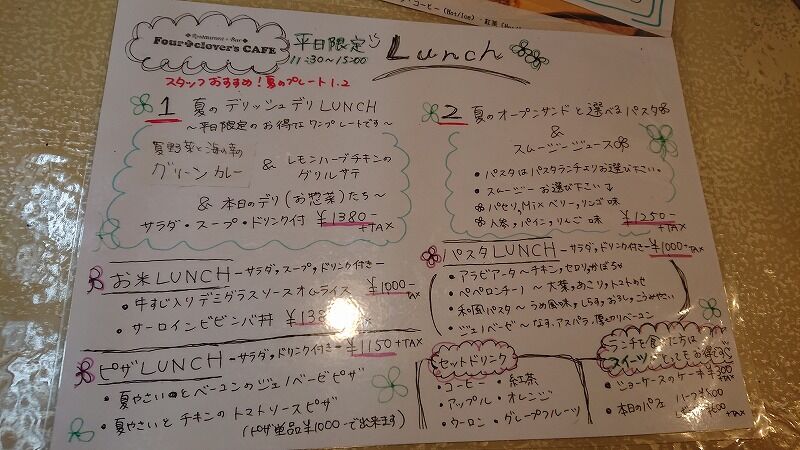 ・コーヒー(Hot/Ice)・紅茶
Restaurant・Bar
Four clover's CAFE
平日限定
11:30~15:00
Lunch
スタッフおすすめ!夏のプレート1.2
1 夏のデリッシュデリLUNCH
~平日限定のお得なワンプレートです~
夏野菜と海の幸の
グリーンカレー
& レモンハーブチキンの
グリルサテ
& 本日のデリ(お惣菜)たち~
サラダ・スープ・ドリンク付 ¥1380-
+TAX
2 夏のオープンサンドと選べるパスタ
&
スムージージュース
・パスタはパスタランチよりお選び下さい。
・スムージーお選び下さい
パセリ,Mixベリー,リンゴ味
人参,パイン,りんご味 ¥1250-
+TAX
お米LUNCH -サラダ,スープ,ドリンク付き-
・牛すじ入りデミグラスソースオムライス ¥1000-
+TAX
・サーロインビビンバ丼
ピザLUNCH -サラダ,ドリンク付き- ¥1150+TAX
・夏やさいとベーコンのジェノベーゼピザ
・夏やさいとチキンのトマトソースピザ
(ピザ単品¥1000-で出来ます)
パスタLUNCH -サラダ,ドリンク付き- ¥1000+TAX
・アラビアータ~チキン,セロリ,かぼちゃ
・ペペロンチーノ ~大葉,あこり,トマトのせ
・和風パスタ~うめ風味,しらす,おろし,
・ジェノベーゼ~なす,アスパラ,厚切りベーコン
セットドリンク
・コーヒー ・紅茶
・アップル ・オレンジ
・ウーロン ・グレープフルーツ
ランチを食べた方は
スイーツ とってもお得です
・ショーケースのケーキ ¥300
+TAX
・本日のパフェ ハーフ¥500
¥600
+TAX